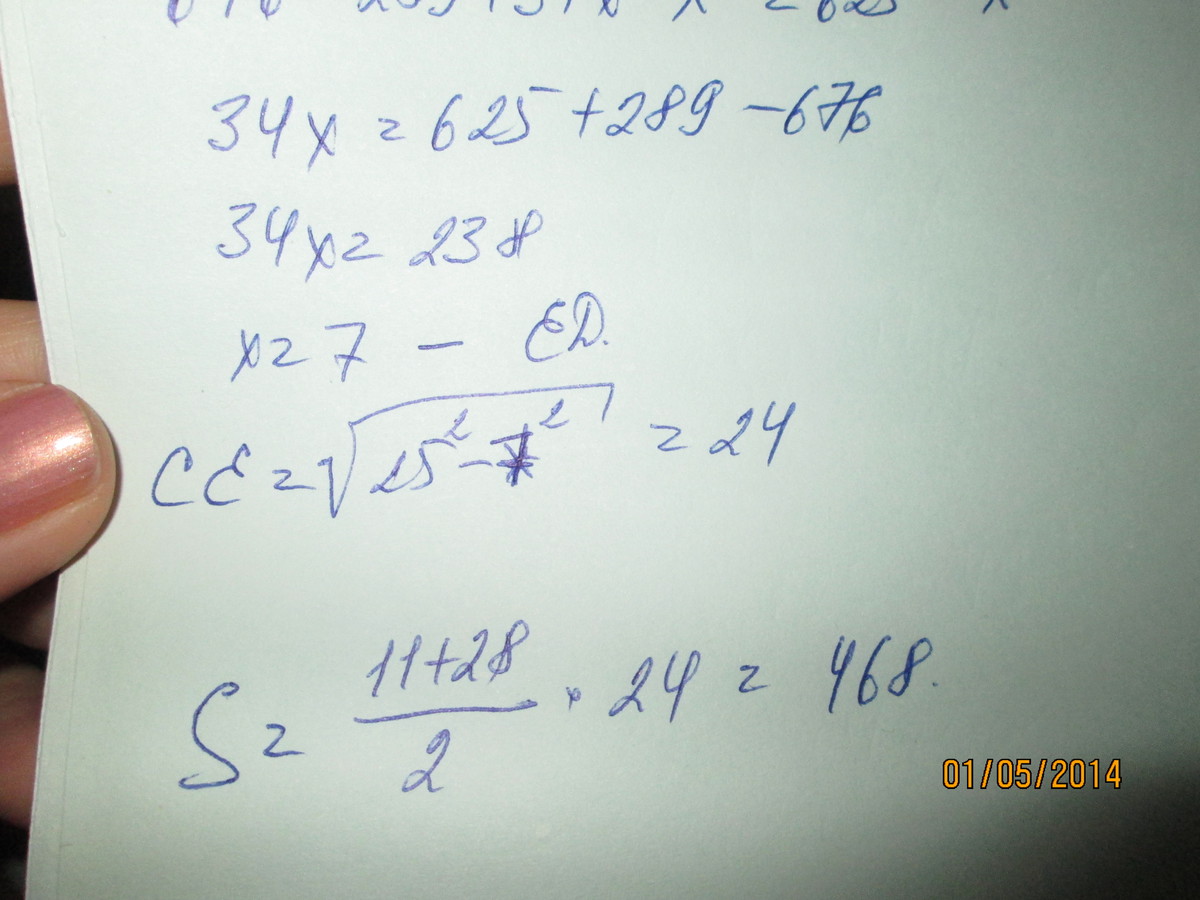 34x = 625 + 289 - 676
34x = 238
x = 7 - ED.
CE = √25² - 7² = 24
S = 11+28/2 · 24 = 468.
01/05/2014